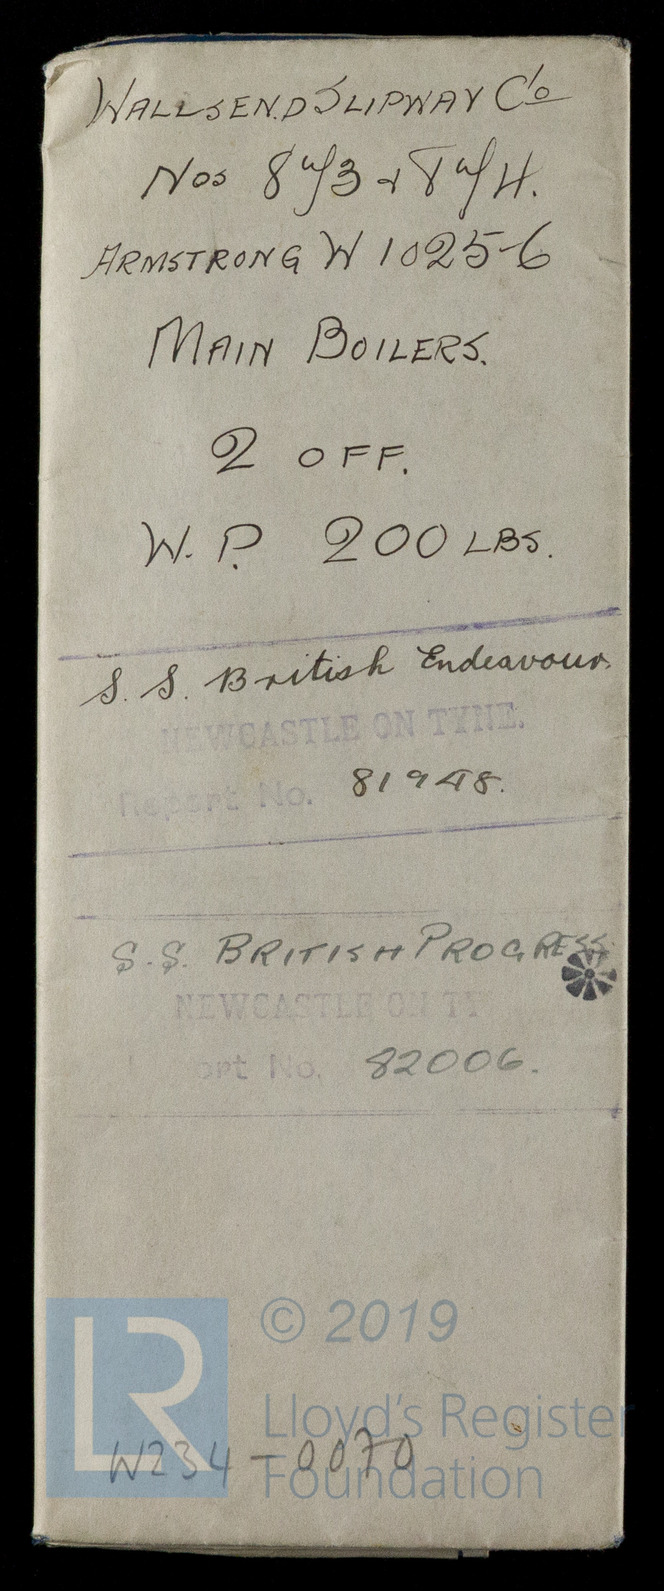 WALLSEND SLIPWAY Co
Nos 8w/3 & 8w/4.
ARMSTRONG W 1025-6
MAIN BOILERS.
2 OFF.
W.P. 200 LBS.
S. S. British Endeavour.
NEWCASTLE ON TYNE.
Report No. 81948.
S.S. BRITISH PROGRESS
NEWCASTLE ON TY
ort No. 82006.
LR
© 2019
Lloyd's Register
Foundation
W234-0070